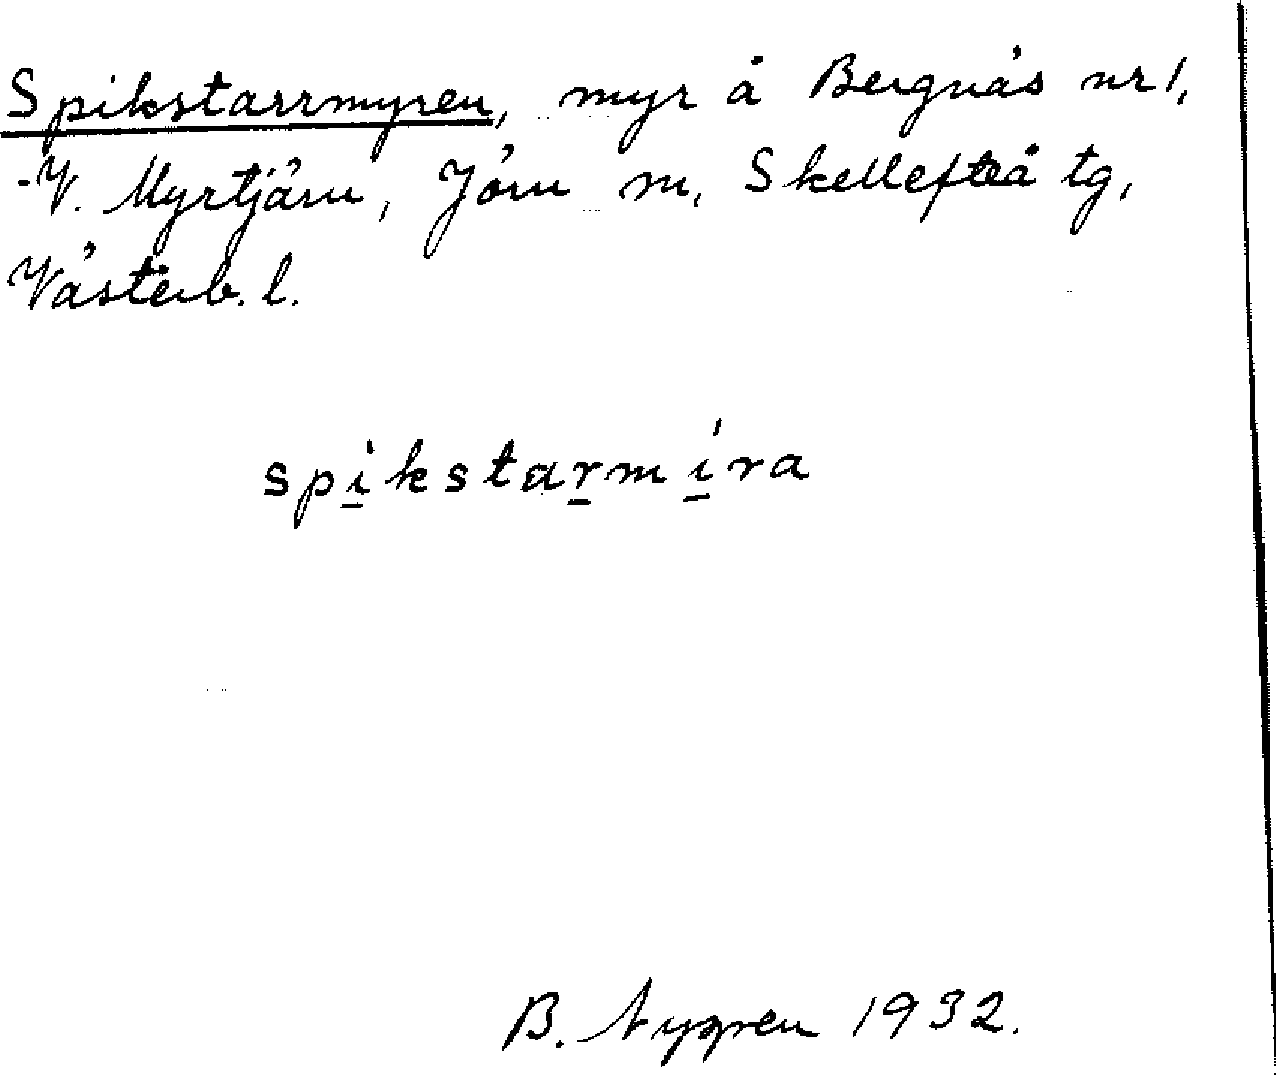 Spikstarrmyren, myr å Bergnäs nr 1,
V. Myrtjärn, Jörn sn, Skellefteå tg,
Västerb. l.
spi̲kstar̲mí̲ra
B. Nygren 1932.